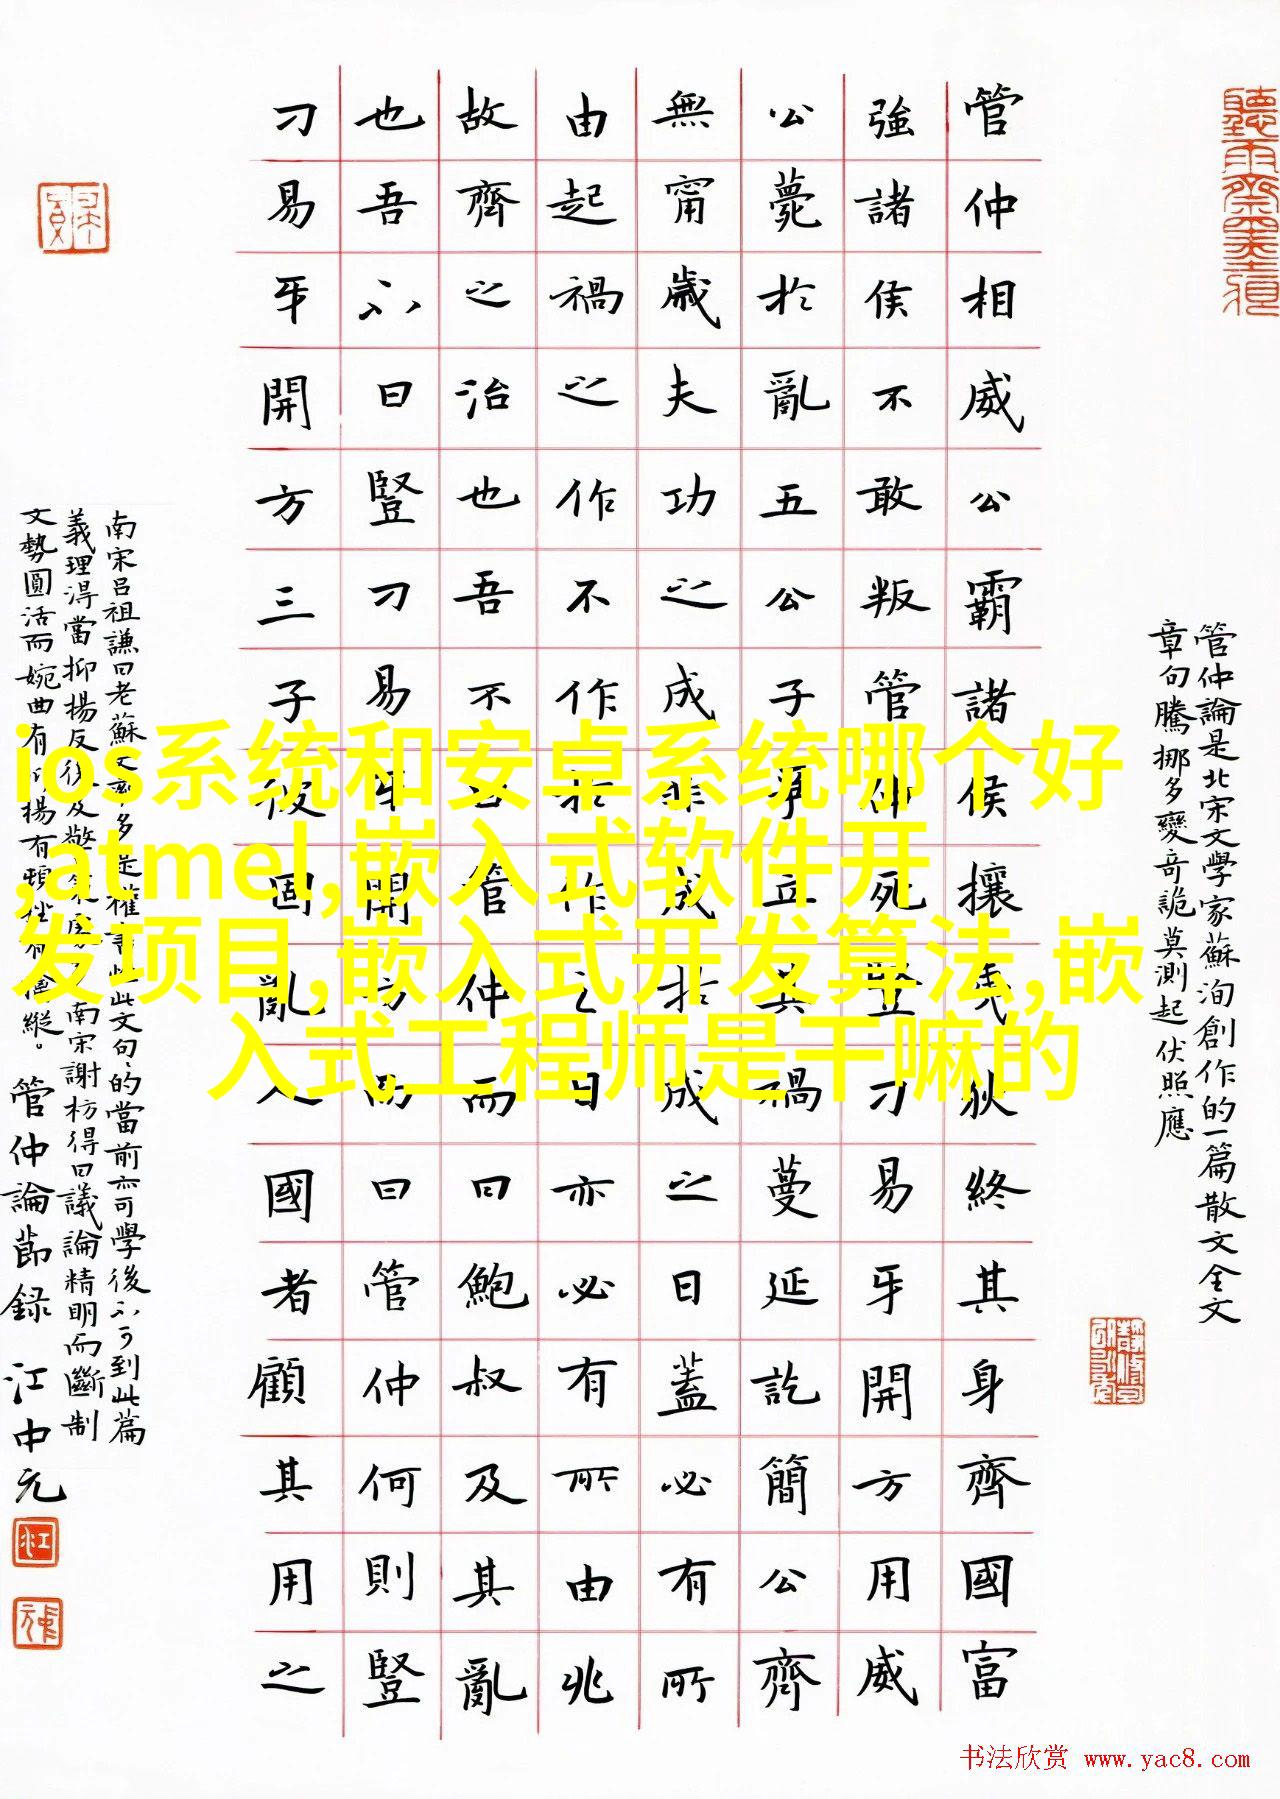 管仲論是北宋文學家蘇洵創作的一篇散文全文
章句騰挪多變奇詭莫測起伏照應
管仲相威公霸諸侯攘夷狄終其身齊國富
強諸侯不敢叛管仲死豎刁易牙開方用威
公薨於亂五公子爭立其禍蔓延訖簡公齊
無甯歲夫功之成非成於成之日蓋必有所
由起禍之作不作於作之日亦必有所由兆
故齊之治也吾不曰管仲而曰鮑叔及其亂
也吾不曰豎刁易牙開方而曰管仲何則豎
刁易牙開方三子彼固亂人國者顧其用之
南宋呂祖謙曰老蘇文率多是權書惟此文句句的當前亦可學後不可到此篇
義理淂當抑揚反復及警策處多南宋謝枋得曰議論精明而斷制
文勢圓活而婉曲有抑揚有頓挫有擒縱。管仲論節録 江中元
ios系统和安卓系统哪个好
,atmel,嵌入式软件开
发项目,嵌入式开发算法,嵌
入式工程师是干嘛的
书法欣赏 www.yac8.com